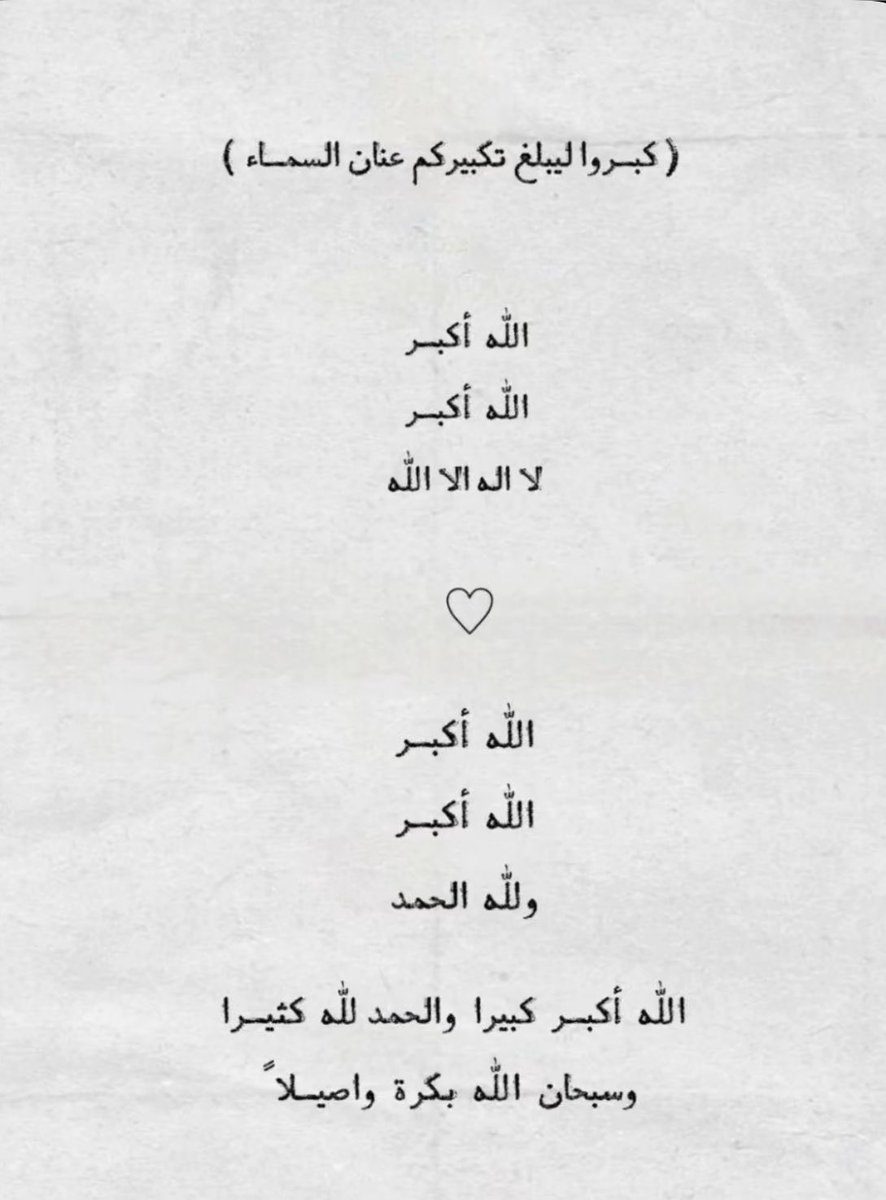 ( كبـروا ليبلغ تكبيركم عنان السمـاء )
الله أكبـر
الله أكبـر
لا اله الا الله
♡
الله أكبـر
الله أكبـر
ولله الحمد
الله أكبـر كبيرا والحمد لله كثيـرا
وسبحان الله بكرة واصيـلاً